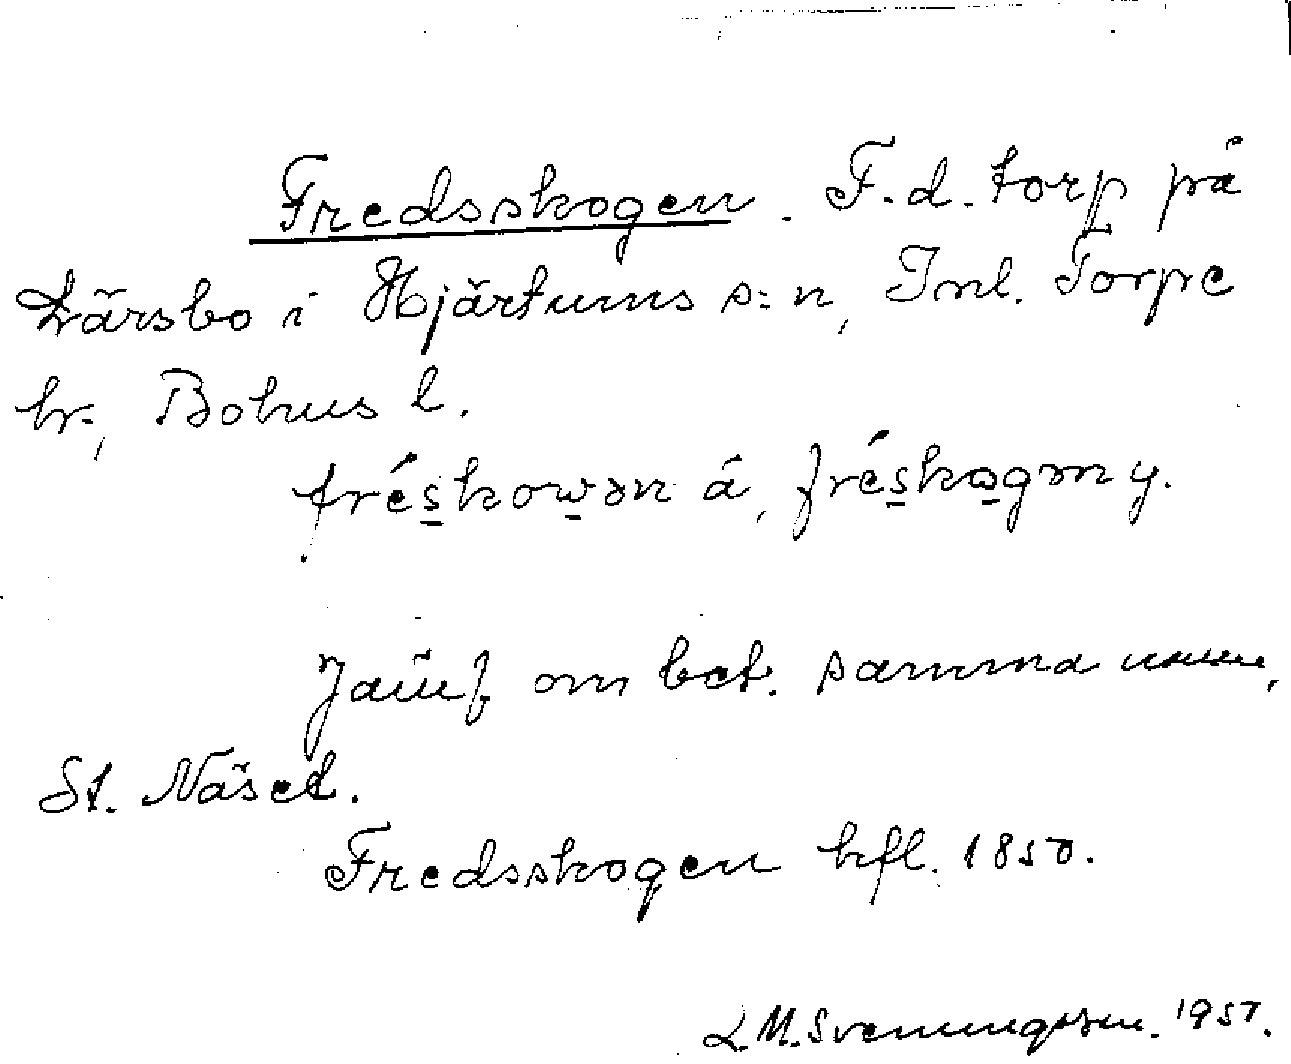 Fredsskogen. F.d. torp på
Lärsbo i Hjärtums s:n, Inl. Torpe
hr., Bohus l.
fréskowən á, fréskogən y.
Jämf om bet. samma namn,
St. Näset.
Fredsskogen hfl. 1850.
L.M. Svenungsson. 1957.